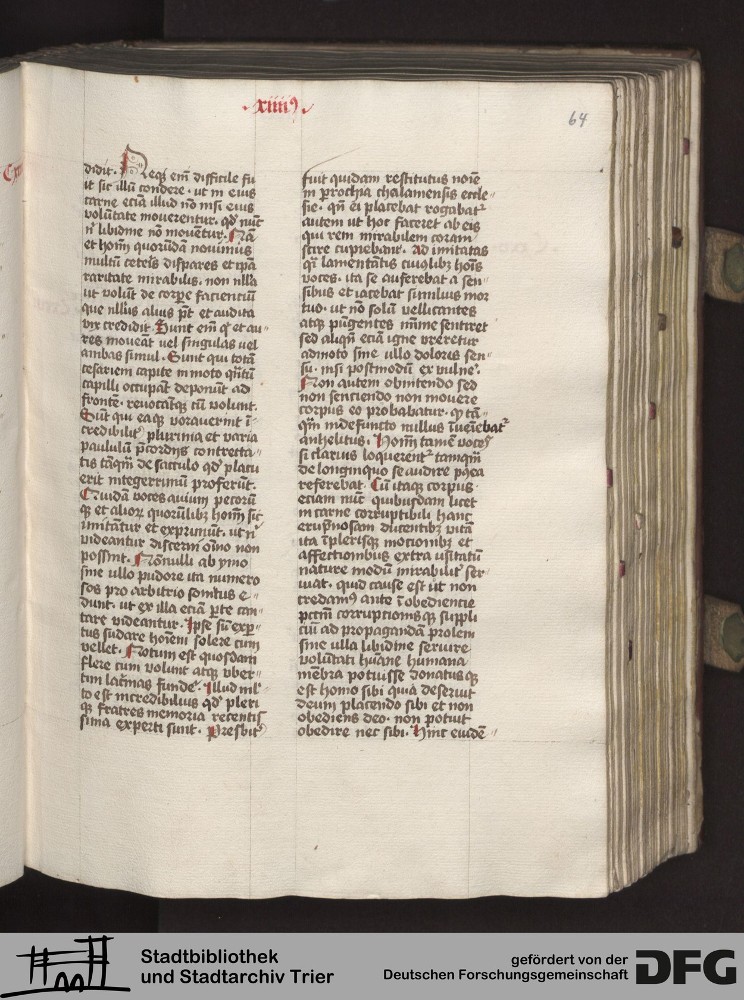 xiiii⁹
64
didit. Neq₃ em̄ difficile fu
it sic illū condere. ut in eius
carne eciā illud nō nisi eius
volūtate moveretur. qd̄ nūc
n̄ libidine nō movetur. Nā
et hoīm quorūdā novimus
multū ceteris dispares et ip̄a
raritate mirabilis. non nlla
ut volūt de corpe facientiū
que nllus alius pt̄ et audita
vix credidit. Sunt em̄ q̄ et au-
res moveāt vel singulas vel
ambas simul. Sunt qui totā
cesariem capite inmoto q̄ntū
capilli occupāt deponūt ad
frontē. revocātq₃ cū volunt.
Sūt qui eaq̄ voraverint ī-
credibilit̄ plurima et varia
paululū p̄cordijs contrecta-
tis tāqm̄ de sacculo qd̄ placu
erit integerrimū proferūt.
Quidā voces avium pecorū
q̄ et alior̄ quorūlibz hoīm sic
imitātur et exprimūt. ut n̄
videantur discerni oīno non
possint. Nōnulli ab ymo
sine ullo pudore ita numero
sos pro arbitrio sonitus e-
dunt. ut ex illa eciā pte can
tare videantur. Ipse sū exp
tus sudare hoīem solere cum
vellet. Notum est quosdam
flere cum volunt atq₃ vber-
tim lac̄mas fundē. Illud ml̄-
to est incredibilius qd̄ pleri
q̄ fratres memoria recentis
sima experti sunt. Presbit̄
fuit quidam restitutus noīe
in prochia chalamensis eccle-
sie. qn̄ ei placebat rogabat᷑
autem ut hoc faceret ab eis
qui rem mirabilem coram
scire cupiebant. ad imitatas
q̄si lamentātis cuiuslibz hoīs
voces. ita se auferebat a sen-
sibus et iacebat simlius mor
tuo. ut nō solū vellicantes
atq₃ pūgentes mīme sentiret
sed aliqn̄ eciā igne vreretur
admoto sine ullo doloris sen-
su. nisi postmodū ex vulnē.
Non autem obnitendo sed
non senciendo non movere
corpus eo probabatur. q̄ tā-
qm̄ in defuncto nullus īveīebat᷑
anhelitus. Hoīm tamē voces
si clarius loquerent᷑ tamqm̄
de longinquo se audire p9ea
referebat. Cū itaq₃ corpus
eciam nūc quibusdam licet
in carne corruptibili hanc
erūpnosam ducentibz vitā
ita ī plerisq₃ mocionibz et
affectionibus extra usitatū
nature modū mirabilit̄ ser-
uiat. quid cause est ut non
credam9 ante īobediencie
pctm̄ corruptionisq₃ suppli
ciū ad propagandā prolem
sine ulla libidine seruire
volūtati huāne humana
mēbra potuisse donatus q̄
est homo sibi quia deseruit
deum placendo sibi et non
obediens deo. non potuit
obedire nec sibi. Hinc euidē-
Stadtbibliothek
und Stadtarchiv Trier
gefördert von der
Deutschen Forschungsgemeinschaft
DFG